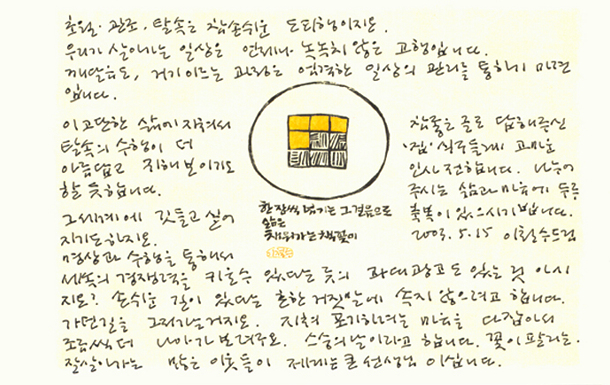 초월·관조, 탈속은 참 손쉬운 도피행이지요.
우리가 살아내는 일상은 언제나 녹록치 않은 고행입니다.
깨달음도, 거기 이르는 과정은 엄격한 일상의 관리를 통하기 마련
입니다.
이 고단한 삶에 지쳐서
탈속의 수행이 더
아름답고 지혜 보이기도
할 듯합니다.
그 세계에 깃들고 싶어
지기도 하지요.
명상과 수행을 통해서
세속의 경쟁력을 키울 수 있다는 듯의 과대광고도 있는 것 아시
지요? 손쉬운 길이 있다는 흔한 거짓말에 속지 않으려고 합니다.
가던 길을 그저 가는 거지요. 지치고 포기하려는 마음을 다잡아서
조금씩 더 나아가 보려구요. 스승의 날이라고 합니다. 꽃이 팔리는.
잘 살아가는 많은 이웃들이 제게는 큰 선생님이십니다.
한 장씩 넘기는 그 걸음으로
삶은
채워가는 책꽂이
참 좋은 줄로 답해주신
집·식구들께 고마운
인사 전합니다. 나누어
주시는 삶과 마음에 두루
축복이 있으시기 빕니다.
2003. 5. 15 이철수 드림